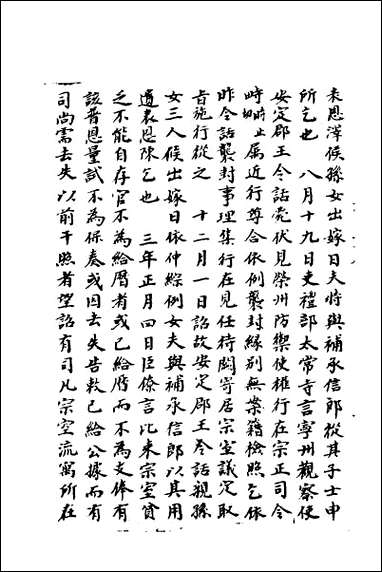 表恩澤候孫女出嫁日夫將與補承信郎從其子士申
所乞也　八月十九日吏禮部太常寺言寧州觀察使
安定郡王令話薨伏見榮州防禦使權行在宗正司令
時畤止属近行尊合依例襲封緣别無案籍檢照乞依
昨令話襲封事理集行在見任待闕寄居宗室議定取
旨施行從之　十二月一日詔故安定郡王令話親孫
女三人候出嫁日依仲綜例女夫與補承信郎以其用
遺表恩陳乞也　三年正月四日臣僚言比来宗室貧
乏不能自存官不為給曆者或已給曆而不為支俸有
該普恩量試不為保奏或因去失告敕已給公據而有
司尚需去失以前干照者望詔有司凡宗室流寓所在